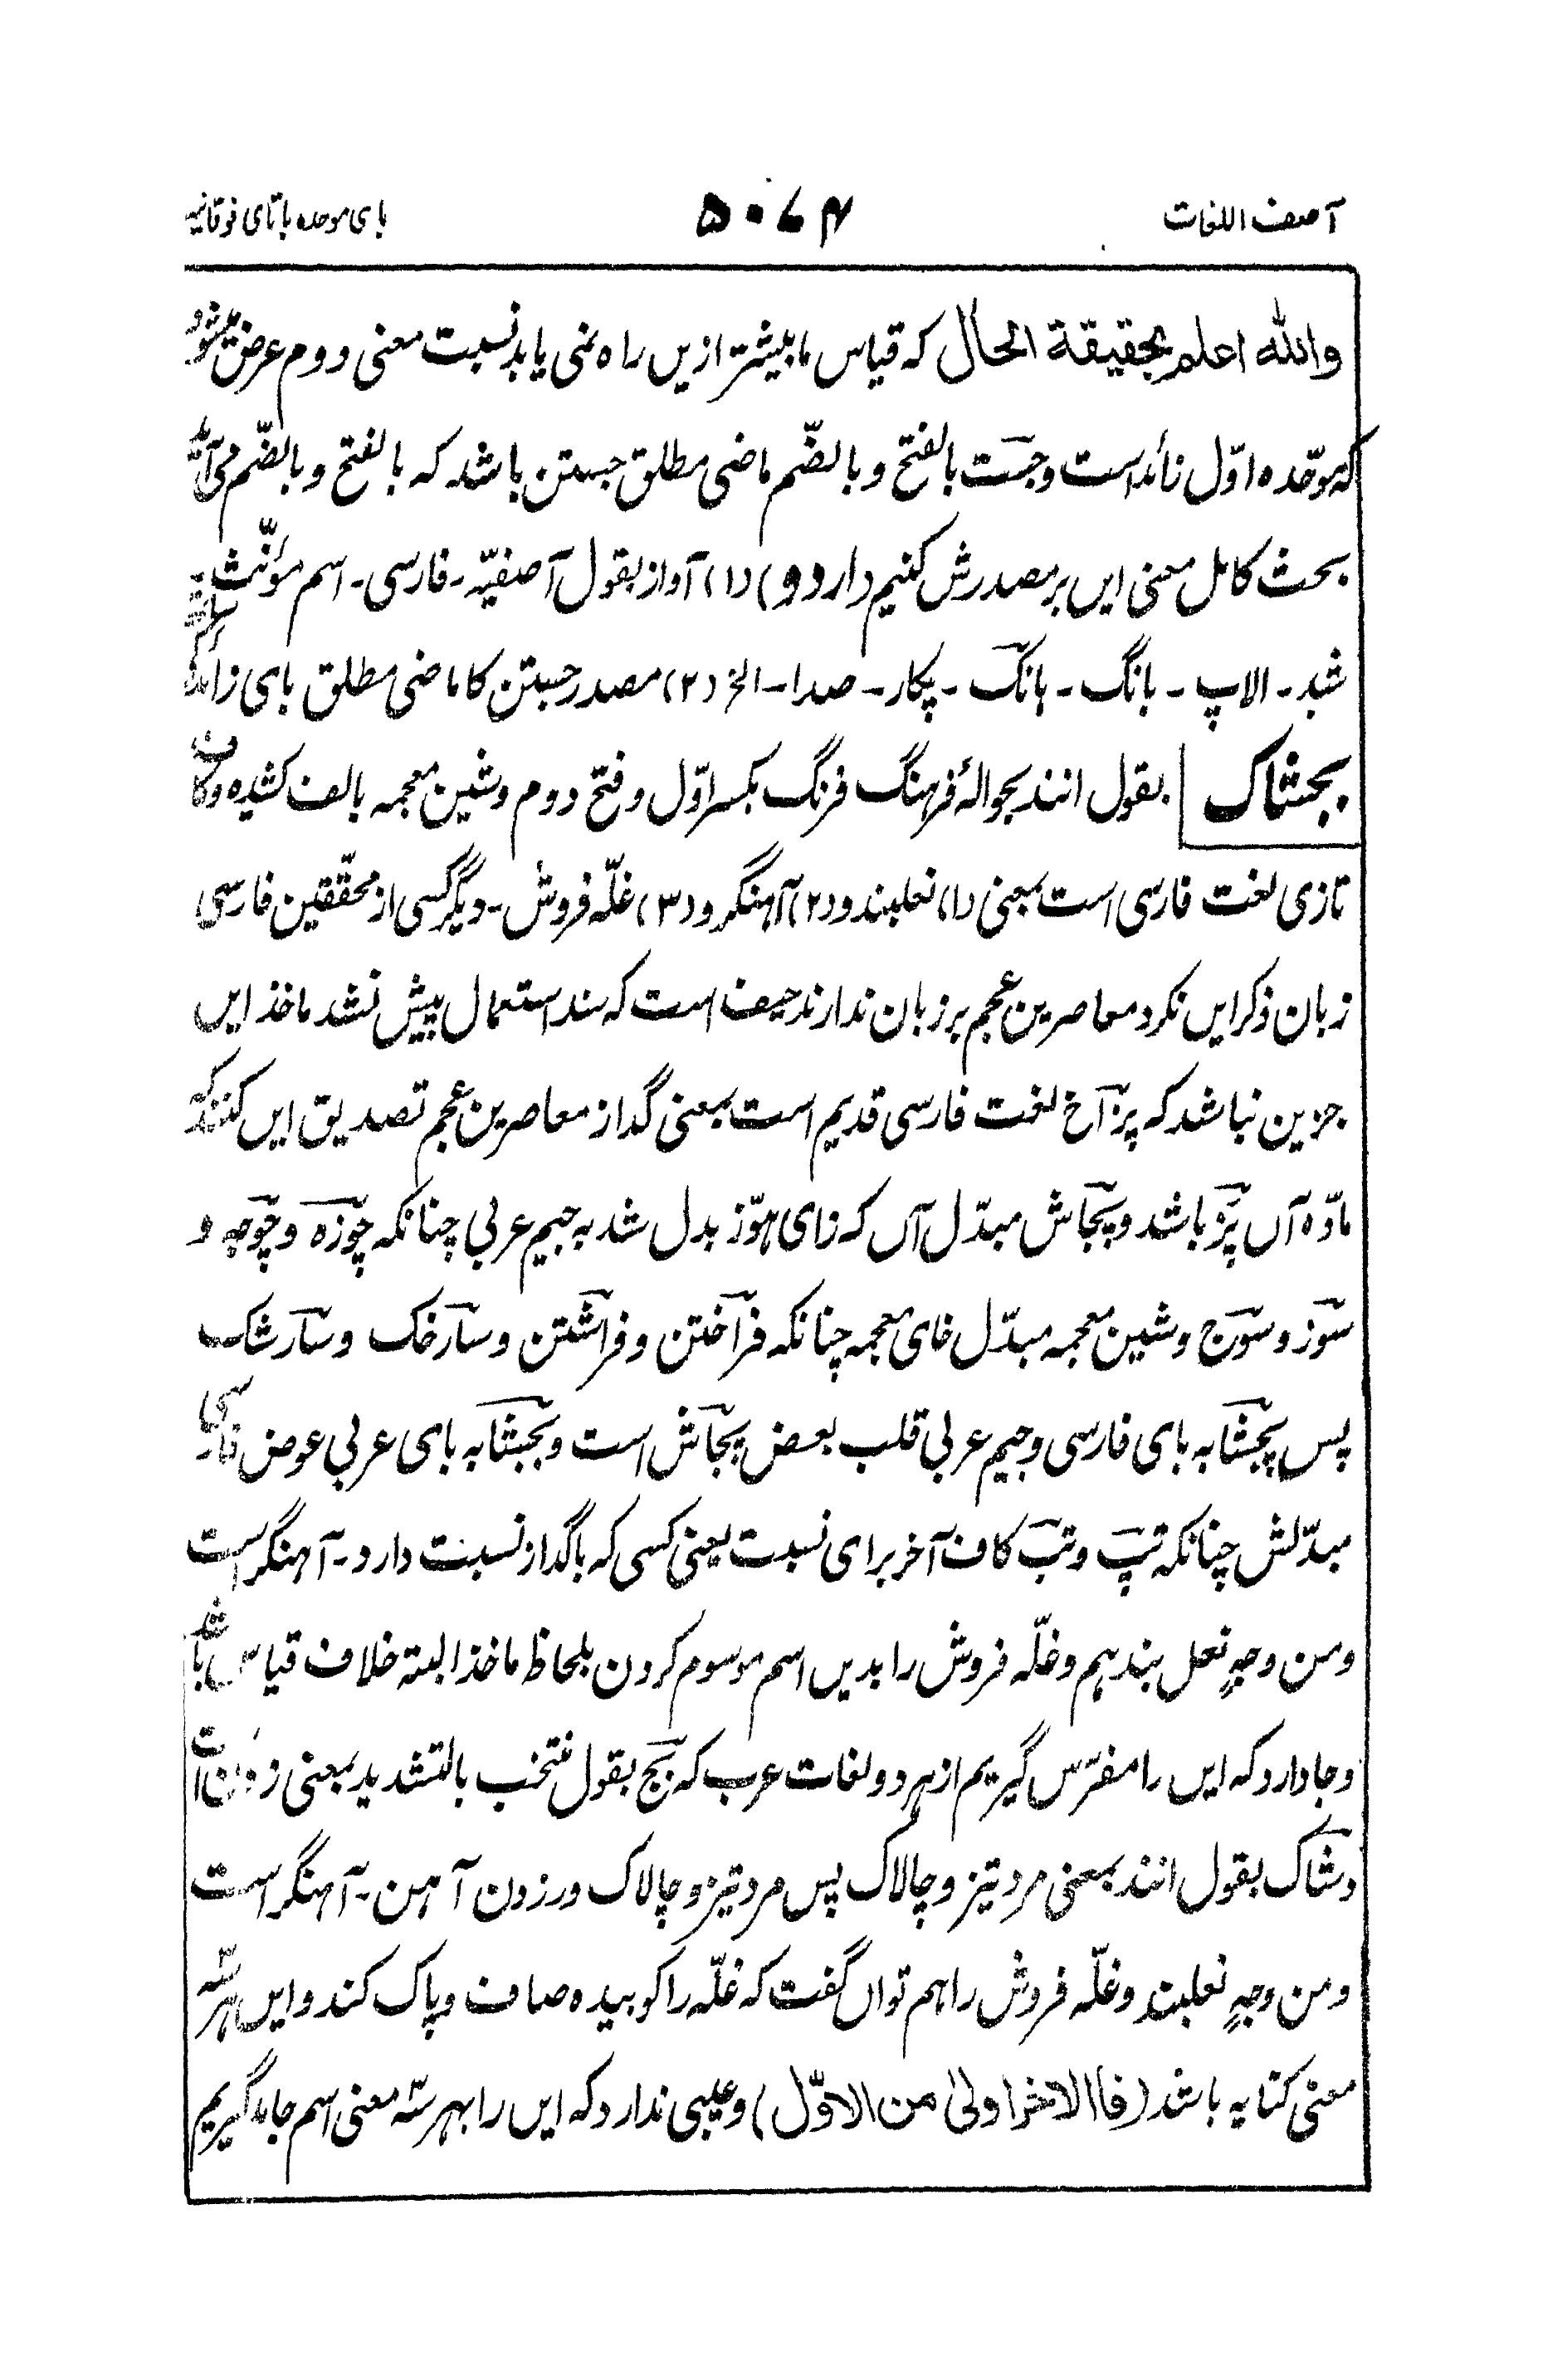 آصف اللغات ۵۰۷۴ بای موحده با تای فوقانیه
والله اعلم بحقیقة الحال که قیاس ما بیشتر ازیں راه نمی یابد نسبت معنی دوم عرض میشود
که موحّده اوّل زائد است و جست بالفتح و بالضّم ماضی مطلق جستن باشد که بالفتح و بالضّم می آید
بحث کامل معنی ایں بر مصدرش کنیم (اردو) (۱) آواز بقول آصفیّه ۔ فارسی ۔ اسم مؤنّث ۔
شبد ۔ الاپ ۔ بانگ ۔ ہانک ۔ پکار ۔ صدا ۔ الخ (۲) مصدر جستن کا ماضی مطلق بای زاید
بجشاک بقول انند بحوالۂ فرہنگ فرنگ بکسر اوّل و فتح دوم و شین معجمہ بالف کشیده و کاف
تازی لغت فارسی است بمعنی (۱) نعلبند و (۲) آہنگر و (۳) غلّه فروش ۔ دیگر کسی از محقّقین فارسی
زبان ذکر ایں نکرد معاصرین عجم بر زبان ندارند حیف است که سند استعمال پیش نشد ماخذ ایں
جزین نباشد که پزآخ لغت فارسی قدیم است بمعنی گداز معاصرین عجم تصدیق ایں کنند که
مادّه آں پز باشد و پجاش مبدّل آں که زای ہوّز بدل شد به جیم عربی چنانکه چوزه و چوجه و
سوز و سوج و شین معجمه مبدّل خای معجمه چنانکه فراختن و فراشتن و سارخک و سارشک
پس پجشا به بای فارسی و جیم عربی قلب بعض پجاش است و بجشا به بای عربی عوض فارسی
مبدّلش چنانکه تپ و تب کاف آخر برای نسبت یعنی کسی که با گداز نسبت دارد ۔ آہنگر است
و من وجهٍ نعل بند ہم و غلّه فروش را بدیں اسم موسوم کردن بلحاظ ماخذ البته خلاف قیاس باشد
و جا دارد که ایں را مفرّس گیریم از ہر دو لغات عرب که بج بقول منتخب بالتشدید بمعنی زدن است
و شاک بقول انند بمعنی مرد تیز و چالاک پس مرد تیز و چالاک در زدن آہن ۔ آہنگر است
و من وجهٍ نعلبند و غلّه فروش را ہم تواں گفت که غلّه را کوبیده صاف و پاک کند و ایں ہر سه
معنی کنایه باشد (فاالاخر اولیٰ من الاوّل) و عیبی ندارد که ایں را بہر سه معنی اسم جامد گیریم